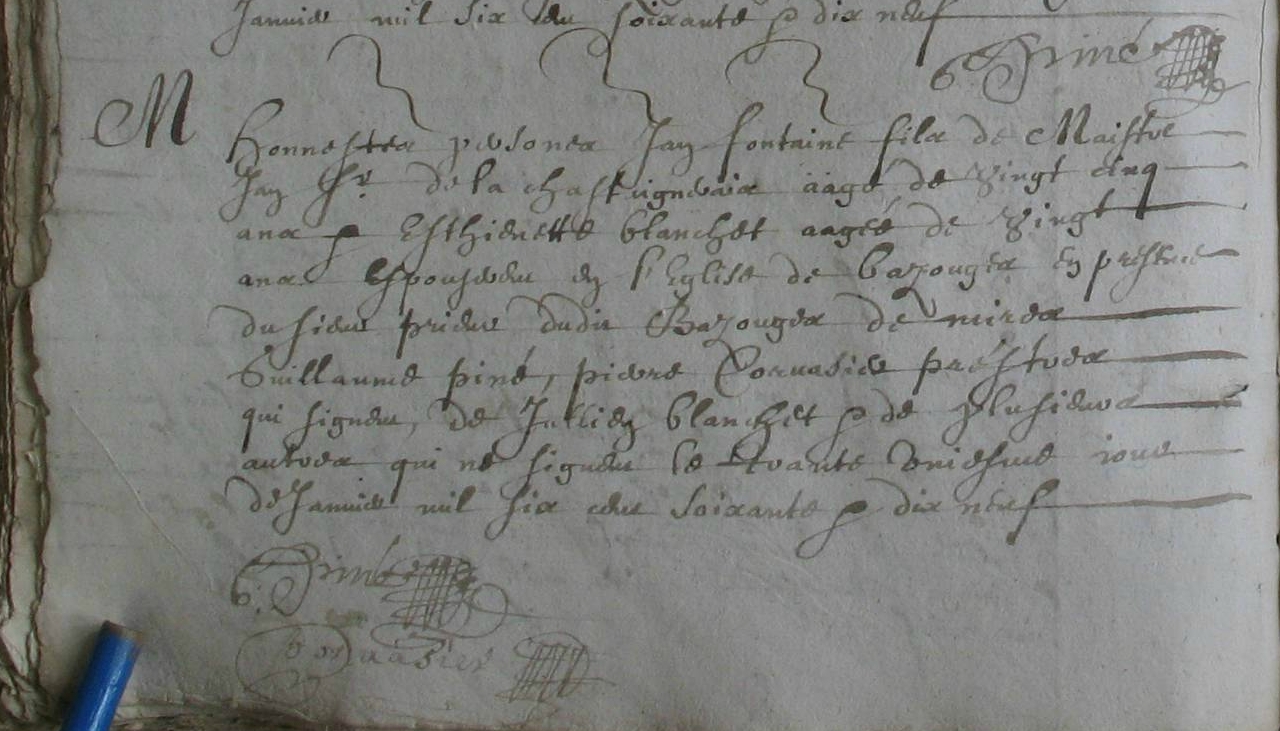 Januier mil six cen soixante & dix neuf
G Piné
M
Honnestes persones Jan fontaine fils de Maistre
Jan Sr de la chastaigneraie aagé de Vingt cinq
ans & Esthienette blanchet aagée de Vingt
ans Espouseren en l'Eglise de bazouges En presence
du sieur prieur dudit Bazouges de mires
Guillaume piné, pierre Coruasier prestres
qui signen, de Jullien blanchet & de plusieurs
autres qui ne signen le trante Vniesme iour
de Januier mil six cens soixante & dix neuf
G. Piné
P Coruasier